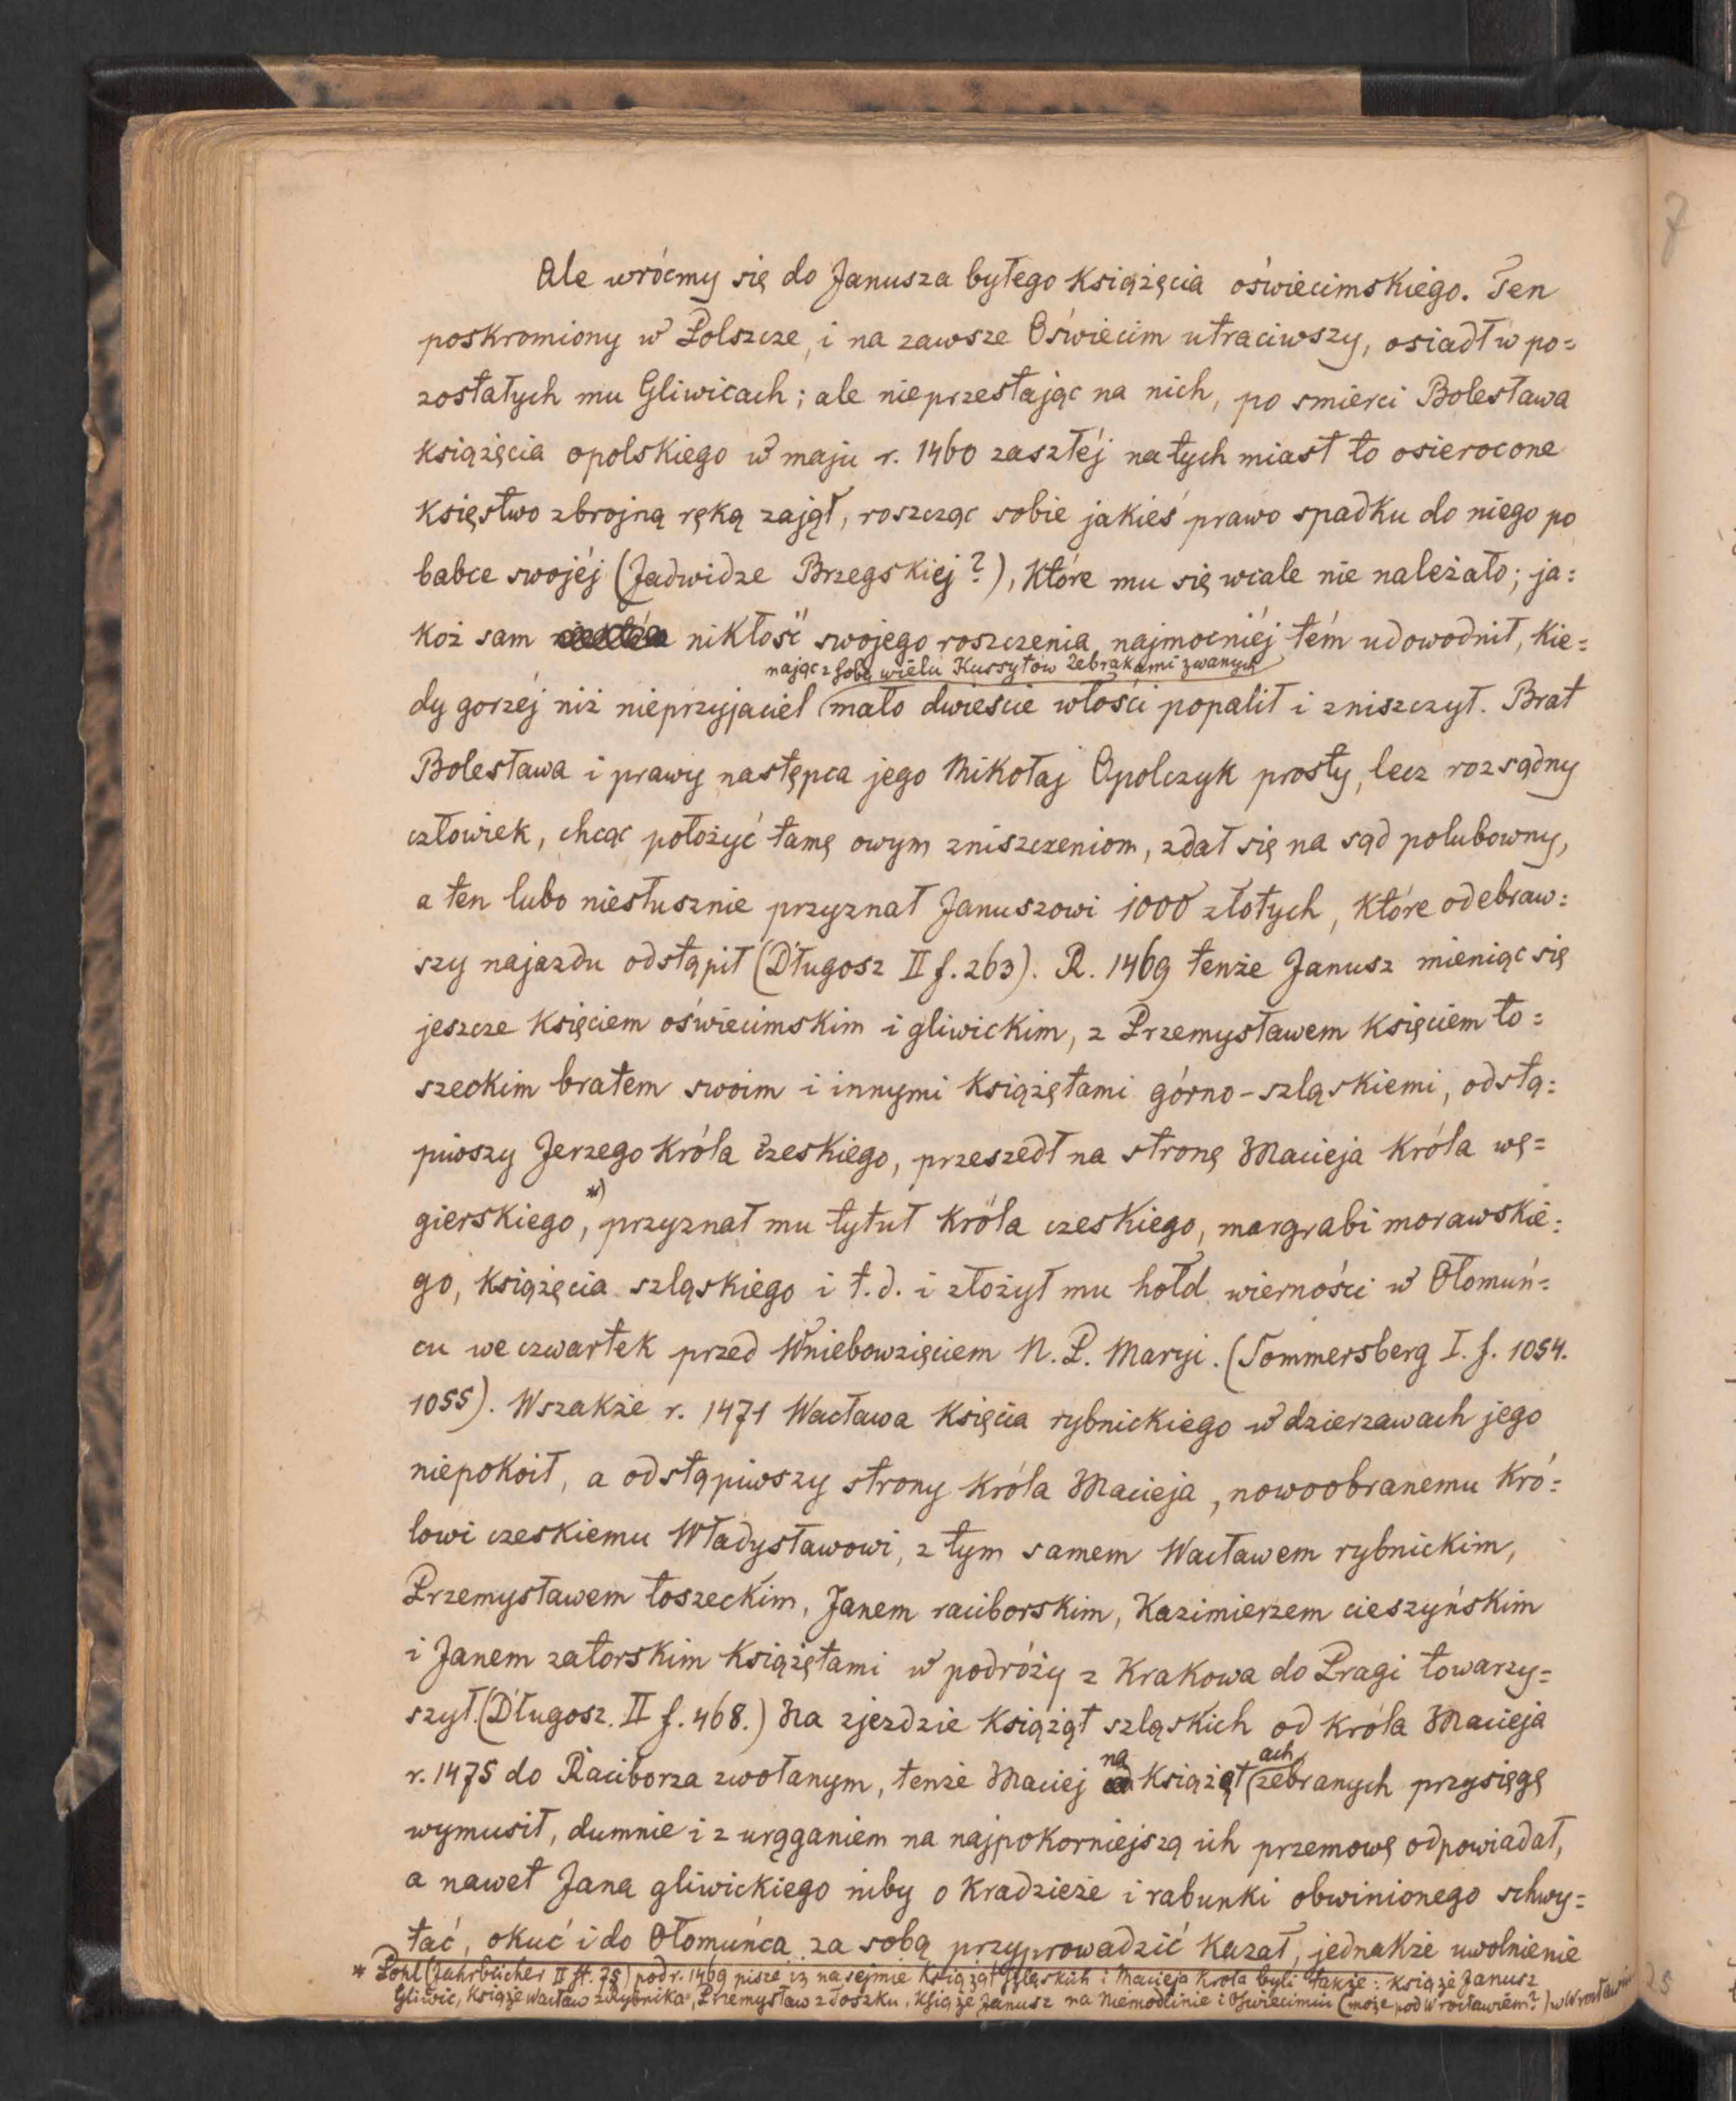 Ale wróćmy się do Janusza byłego Książęcia oświecimskiego. Ten
poskromiony w Polszcze, i na zawsze Oświecim utraciwszy, osiadł w po=
zostałych mu Gliwicach; ale nieprzestając na nich, po smierci Bolesława
książęcia opolskiego w maju r. 1460 zaszłéj natych miast to osierocone
Księstwo zbrojną ręką zajął, roszcząc sobie jakieś prawo spadku do niego po
babce swojéj (Jadwidze Brzegskiej?), Które mu się wcale nie należało; ja=
koż sam nikłość swojego roszczenia najmocniéj tém udowodnił, Kie=
nając z sobą wielu Hussytów Żebrakami zwanych
dy gorzéj niż nieprzyjaciel mało dwieście włości popalił i zniszczył. Brat
Bolesława i prawy następca jego Mikołaj Opolczyk prosty, lecz rozsądny
człowiek, chcąc położyć tamę owym zniszczeniom, zdał się na sąd polubowny,
a ten lubo niesłusznie przyznał Januszowi 1000 złotych, Które odebraw=
szy najazdu odstąpił (Długosz II f. 263). R. 1469 tenże Janusz mieniąc się
jeszcze Księciem oświecimskim i gliwickim, z Przemysławem Księciem to=
szeckim bratem swoim i innymi Książętami górno-szląskiemi, odstą=
piwszy Jerzego Króla czeskiego, przeszedł na stronę Macieja Króla wę=
gierskiego,*) przyznał mu tytuł Króla czeskiego, margrabi morawskie=
go, Książęcia szląskiego i t.d. i złożył mu hołd wierności w Ołomuń=
cu we czwartek przed Wniebowzięciem N. P. Maryi. (Sommersberg I. f. 1054.
1055). Wszakże r. 1471 Wacława Księcia rybnickiego w dzierzawach jego
niepokoił, a odstąpiwszy strony Króla Macieja, nowoobranemu Kró=
lowi czeskiemu Władysławowi, z tym samem Wacławem rybnickim,
Przemysławem toszeckim, Janem raciborskim, Kazimierzem cieszyńskim
i Janem zatorskim Książętami w podróży z Krakowa do Pragi towarzy=
szył. (Długosz. II f. 468.) Na zjezdzie Książąt szląskich od Króla Macieja
r. 1475 do Raciborza zwołanym, tenże Maciej na Książętach zebranych przysięgę
wymusił, dumnie i z urąganiem na najpokorniejszą ich przemowę odpowiadał,
a nawet Jana gliwickiego niby o Kradzieże i rabunki obwinionego schwy=
tać, okuć i do Ołomuńca za sobą przyprowadzić Kazał, jednakże uwolnienie
* Pohl (Jahrbücher II st. 75) pod r. 1469 pisze iż na sejmie Książąt szląskich i Macieja Króla byli także: Książe Janusz
Gliwic, Książe Wacław z Rybnika, Przemysław z Toszku, Książe Janusz na Niemodlinie i Oświecimiu (może pod Wrocławiem?) w Wrocławiu